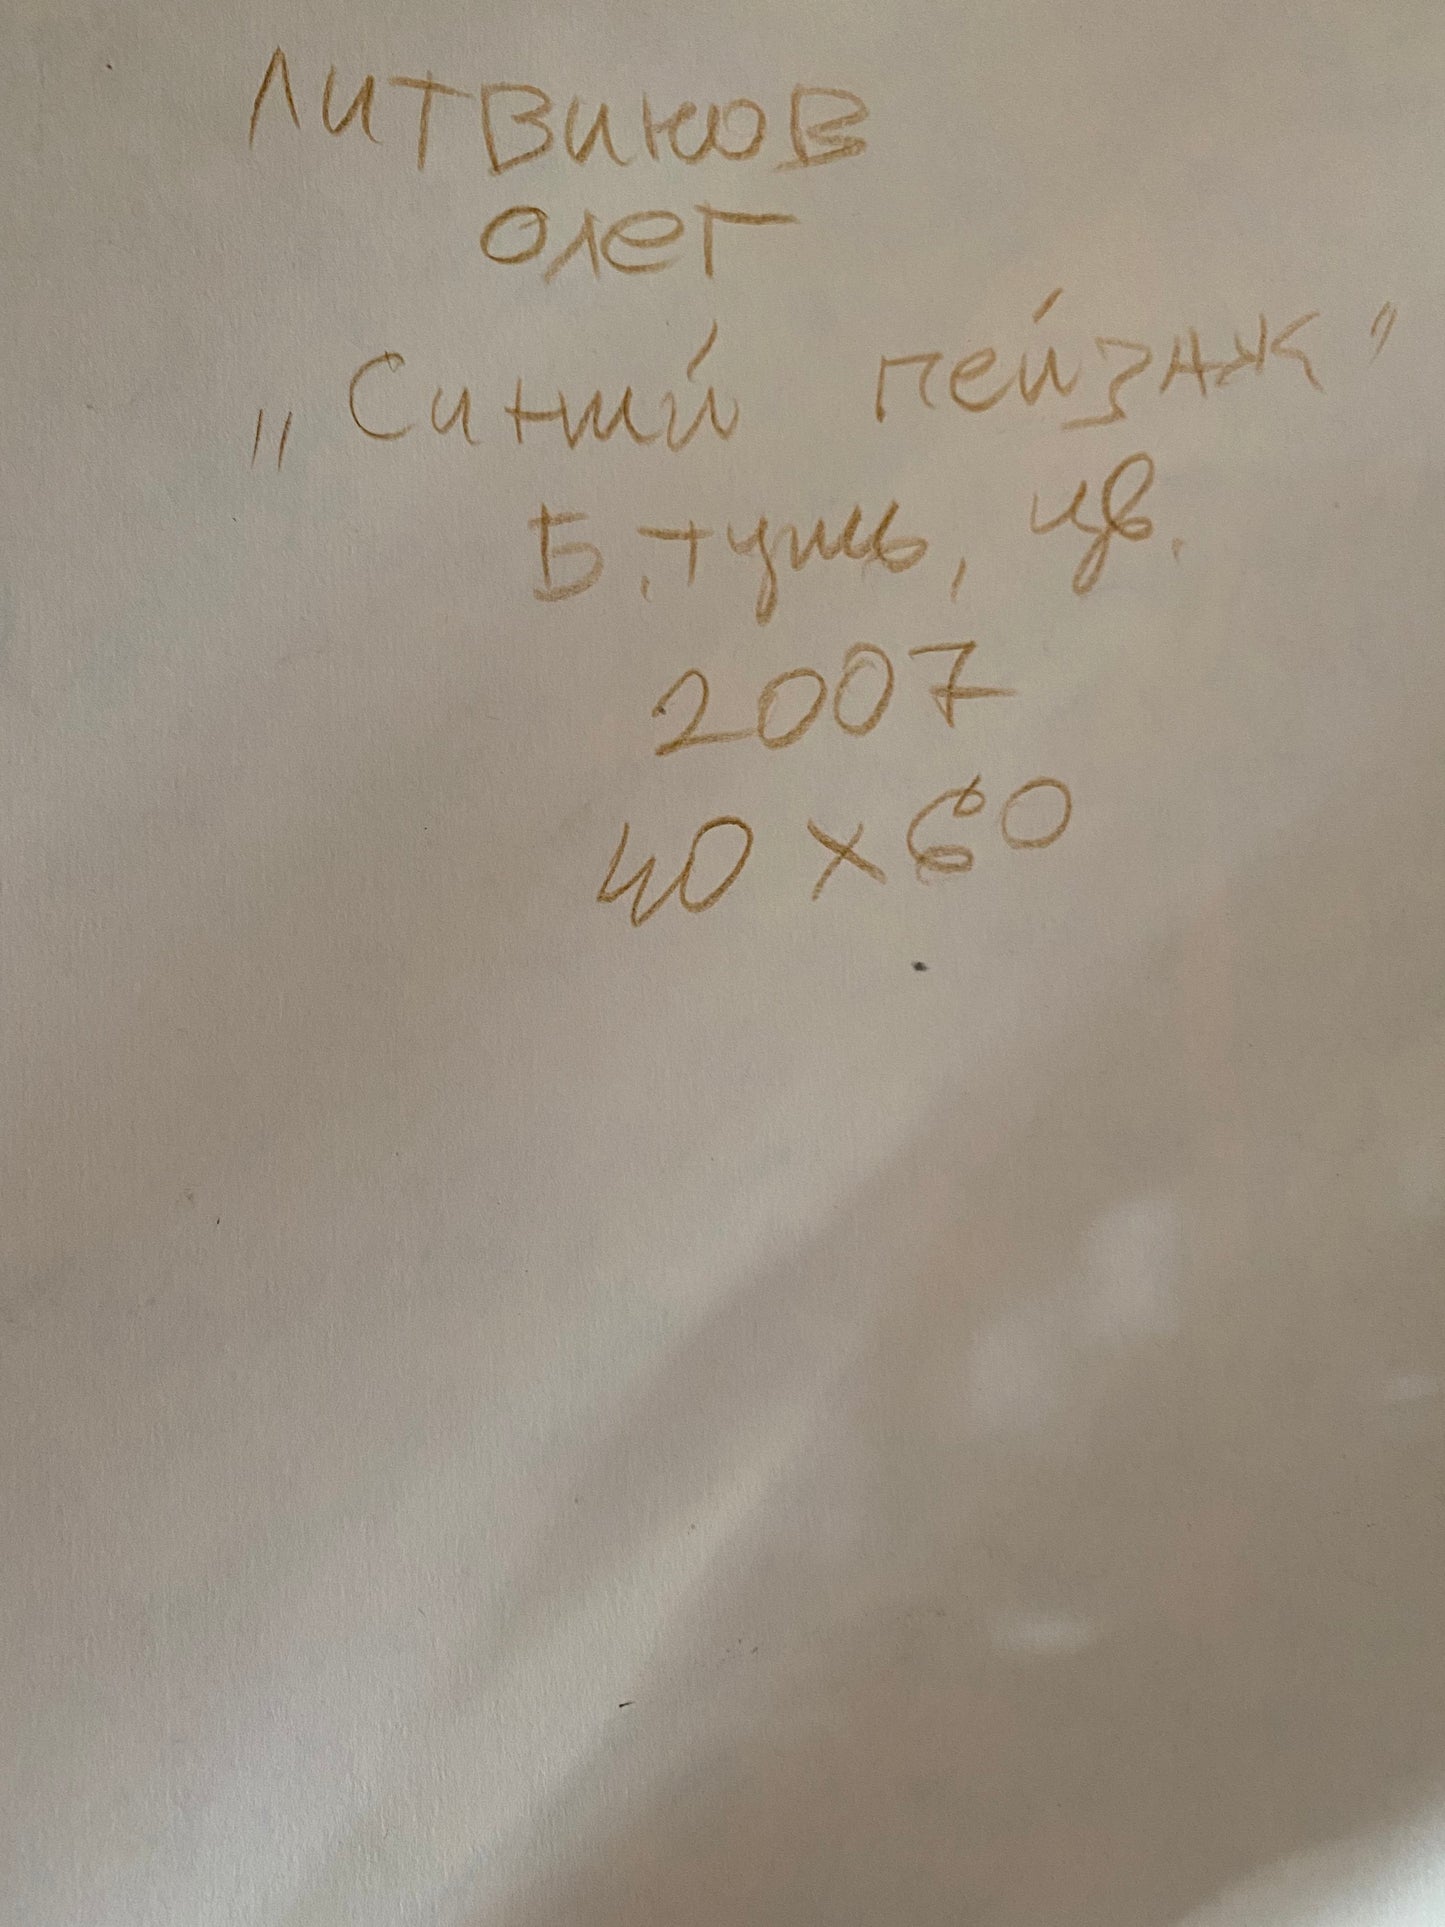 Литвинов
Олег
„Синий пейзаж"
Б. тушь, цв.
2007
40 x 60